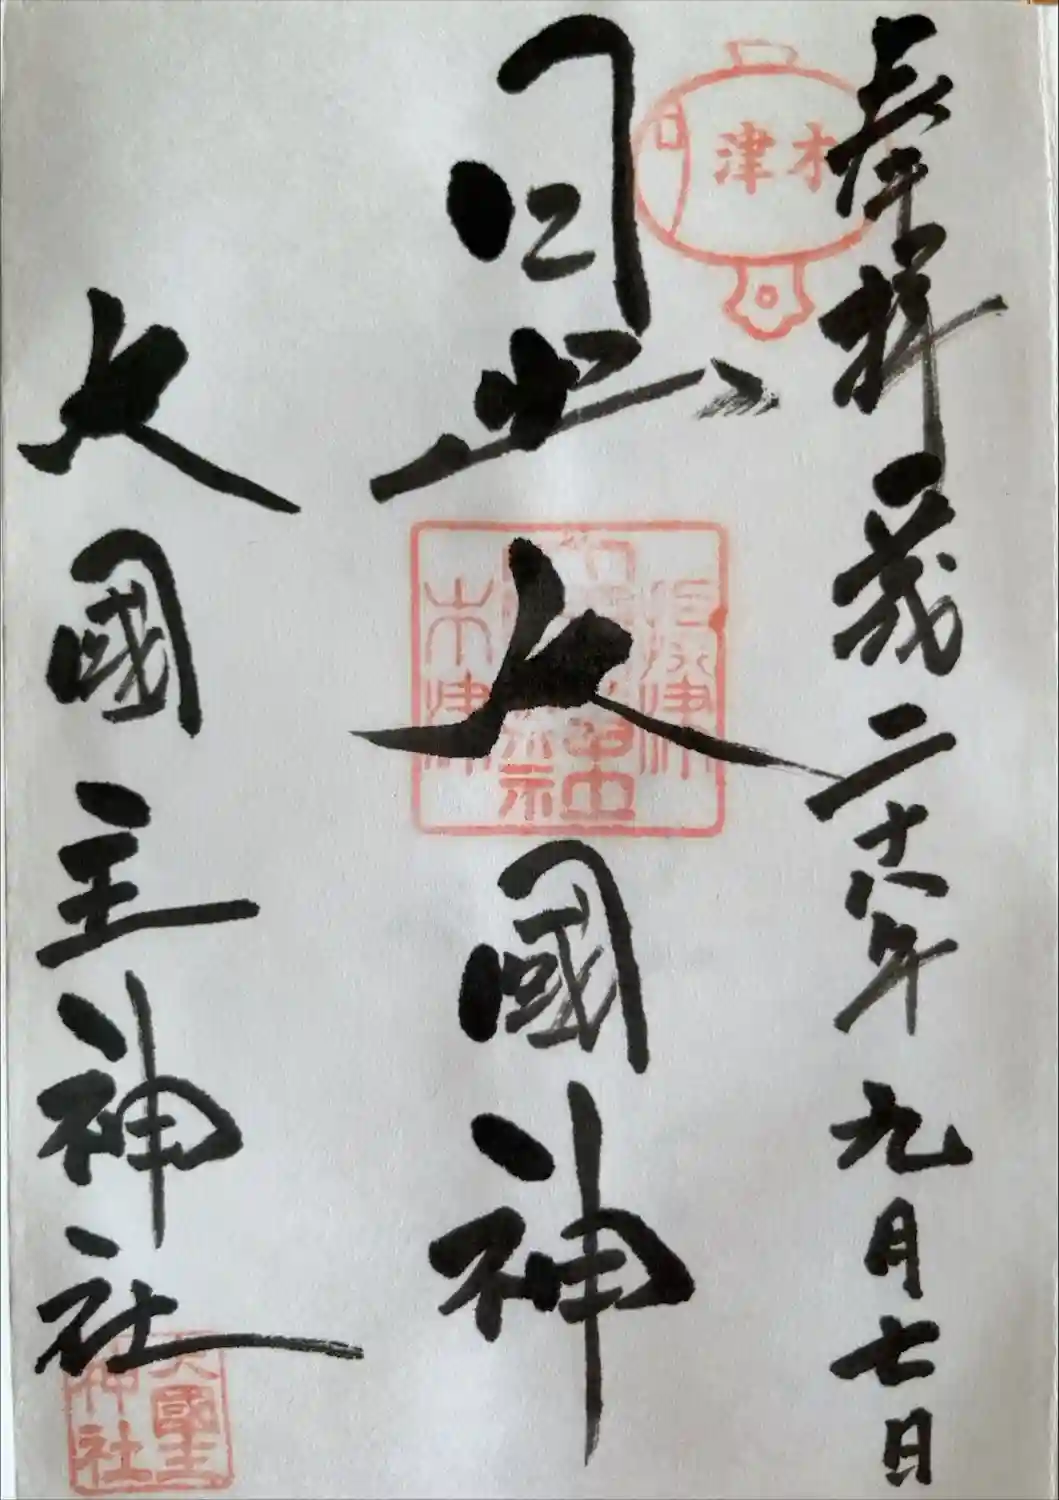 奉拝 歳二十八年九月七日
木津
日出大國神
大國主神社
大國主
神社